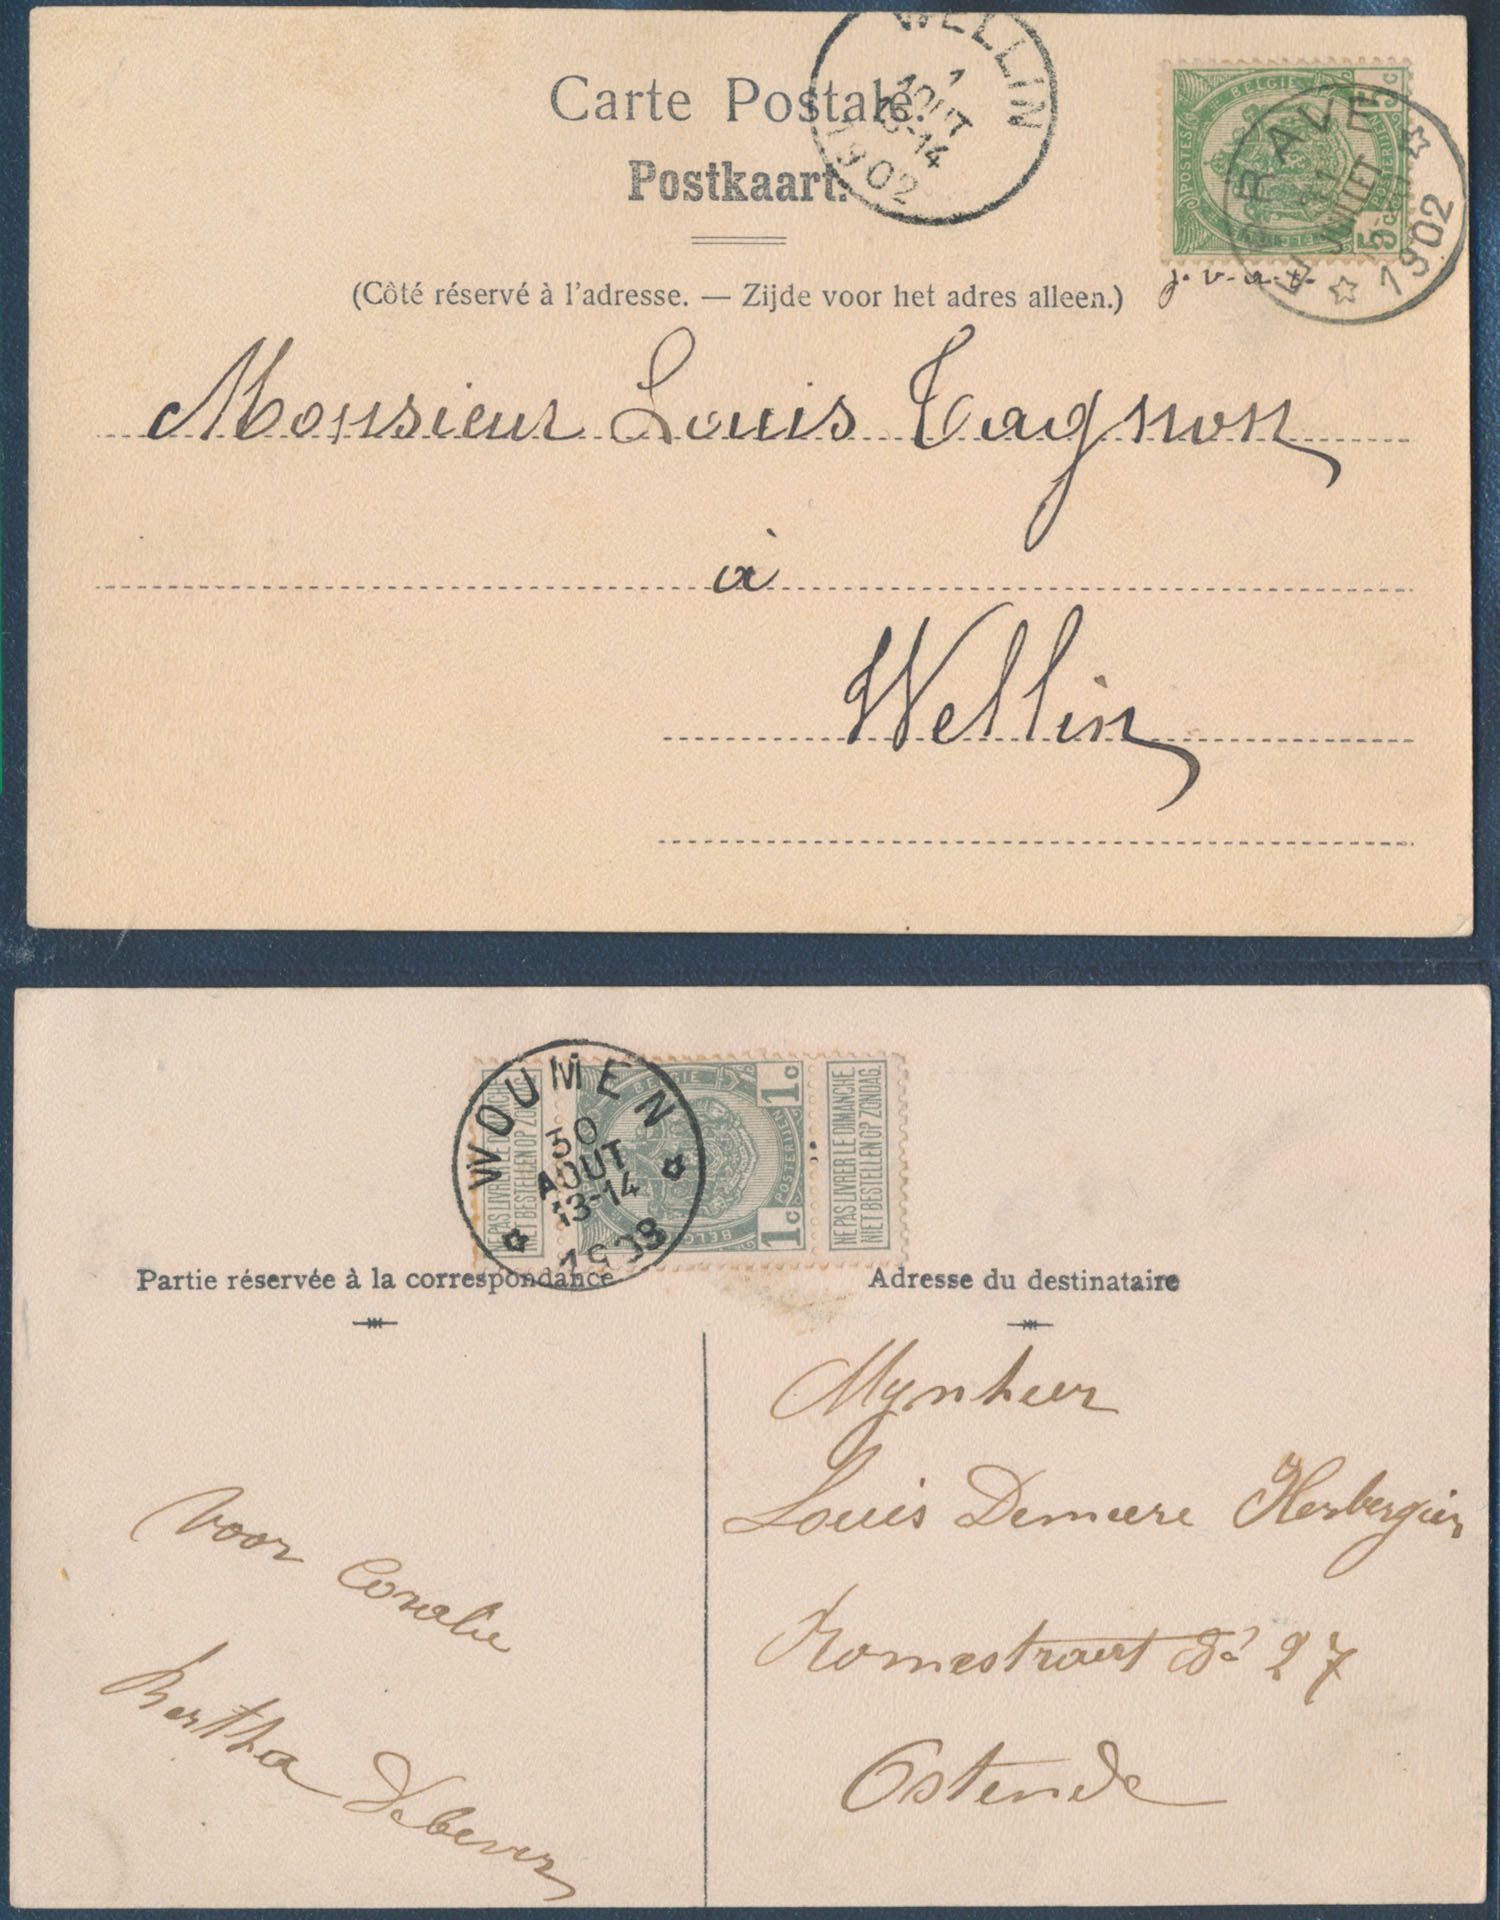 Carte Postale.
Postkaart.
WELLIN
1
AOUT
13-14
1902
BELGIE
POSTES
5c
5c
GRAVE
31
JUILLET
1902
(Côté réservé à l'adresse. — Zijde voor het adres alleen.)
j.v.a.t.
Monsieur Louis Tagnon
à
Wellin
WOUMEN
30
AOUT
13-14
1908
NE PAS LIVRER LE DIMANCHE
NIET BESTELLEN OP ZONDAG.
BELGIE
1c
POSTERIJEN
1c
NE PAS LIVRER LE DIMANCHE
NIET BESTELLEN OP ZONDAG.
Partie réservée à la correspondance
Adresse du destinataire
Voor Coralie
Bertha
Mynheer
Louis Demeere Herbergier
Romestraat 27
Ostende